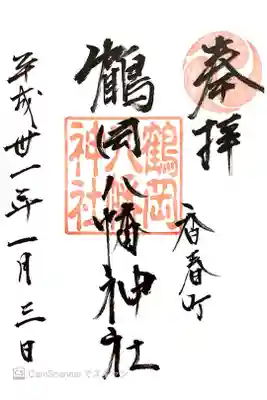 奉拝
香春町
鶴岡八幡神社
鶴岡
八幡
神社
平成廿一年一月三日
CamScanner でスキャン